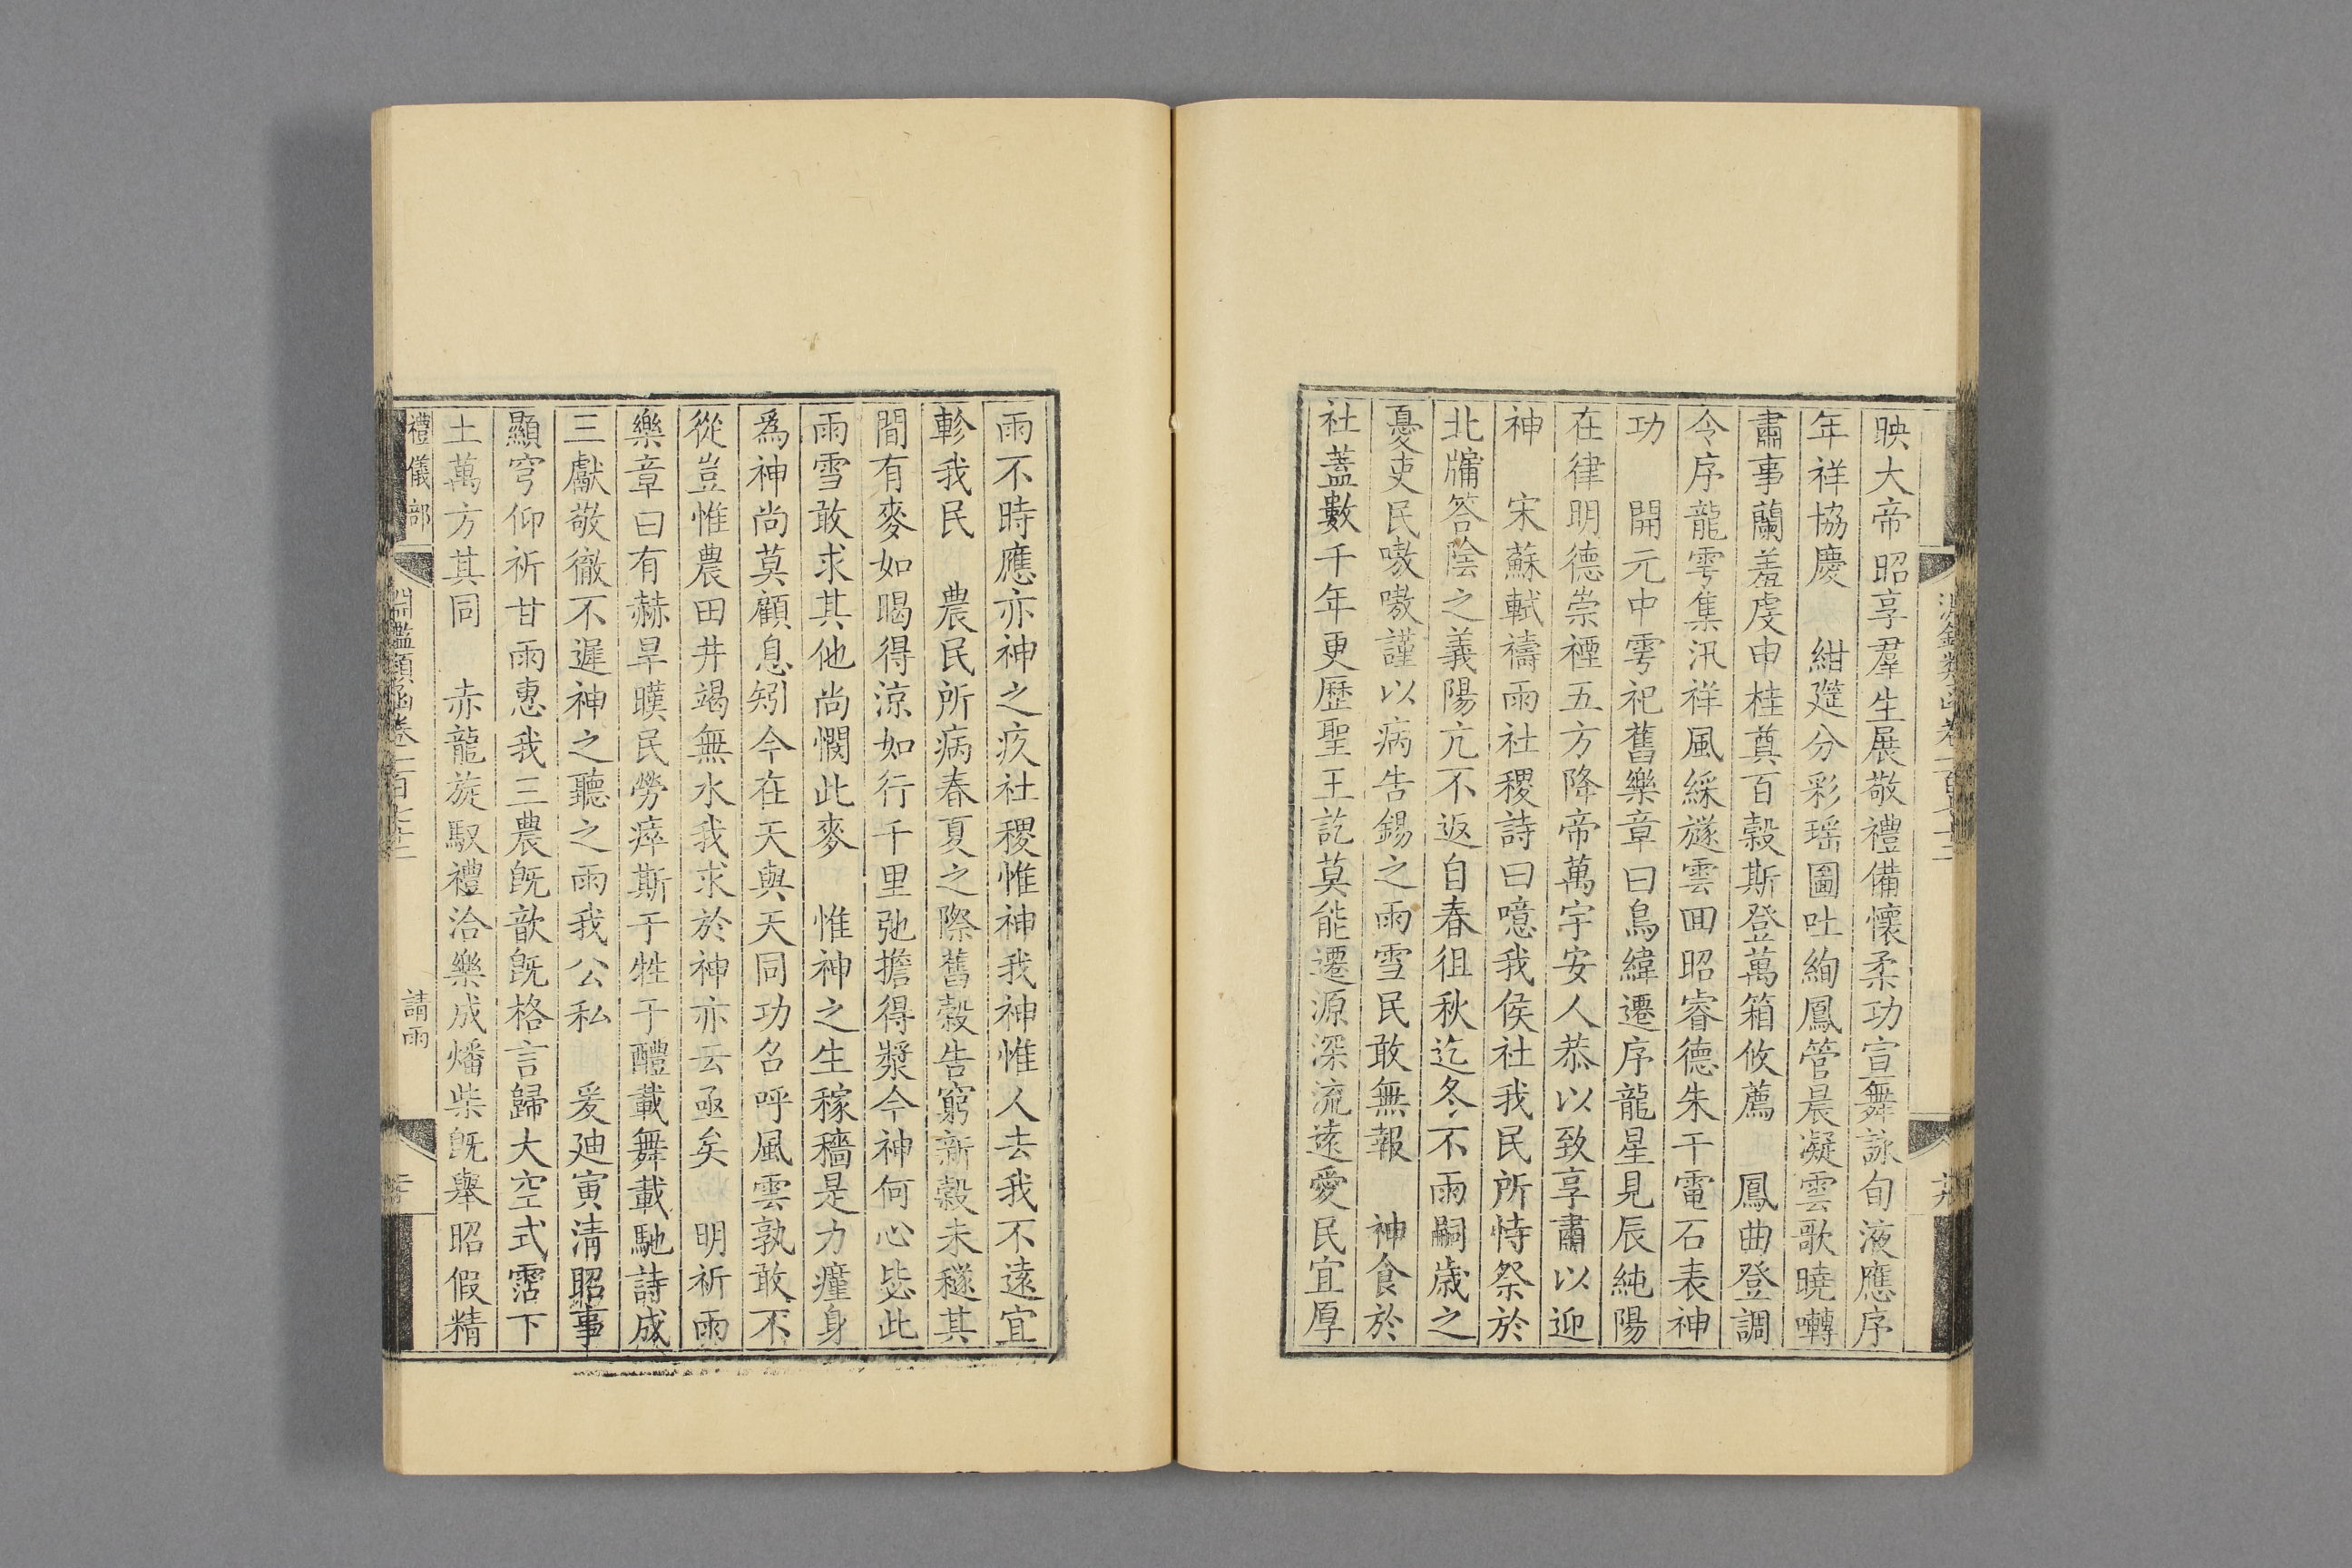 映大帝昭享羣生展敬禮備懷柔功宣舞詠旬液應序
年祥協慶　紺筵分彩瑶圖吐絢鳳管晨凝雲歌曉囀
肅事蘭羞虔申桂奠百穀斯登萬箱攸薦　鳳曲登調
令序龍雩集汛祥風綵旞雲回昭睿德朱干電石表神
功　開元中雩祀舊樂章曰鳥緯遷序龍星見辰純陽
在律明德崇禋五方降帝萬宇安人恭以致享肅以迎
神　宋蘇軾禱雨社稷詩曰噫我侯社我民所恃祭於
北牗答陰之義陽亢不返自春徂秋迄冬不雨嗣歲之
憂吏民嗷嗷謹以病告錫之雨雪民敢無報　神食於
社蓋數千年更歷聖王訖莫能遷源深流遠愛民宜厚
雨不時應亦神之疚社稷惟神我神惟人去我不遠宜
軫我民　農民所病春夏之際舊穀告窮新穀未穟其
間有麥如暍得涼如行千里弛擔得漿今神何心毖此
雨雪敢求其他尚憫此麥　惟神之生稼穡是力癉身
爲神尚莫顧息矧今在天與天同功召呼風雲孰敢不
從豈惟農田井竭無水我求於神亦云亟矣　明祈雨
樂章曰有赫旱暵民勞瘁斯于牲于醴載舞載馳詩成
三獻敬徹不遲神之聽之雨我公私　爰迪寅清昭事
顯穹仰祈甘雨惠我三農旣歆旣格言歸大空式霑下
土萬方其同　赤龍旋馭禮洽樂成燔柴旣舉昭假精
禮儀部　淵鑑類函卷一百七十二　請雨